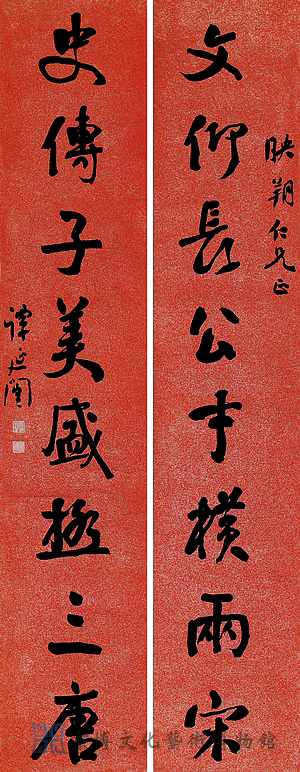 映朔仁兄正
文仰長公才橫兩宋
史傳子美盛極三唐
譚延闓
博文化藝術博物館